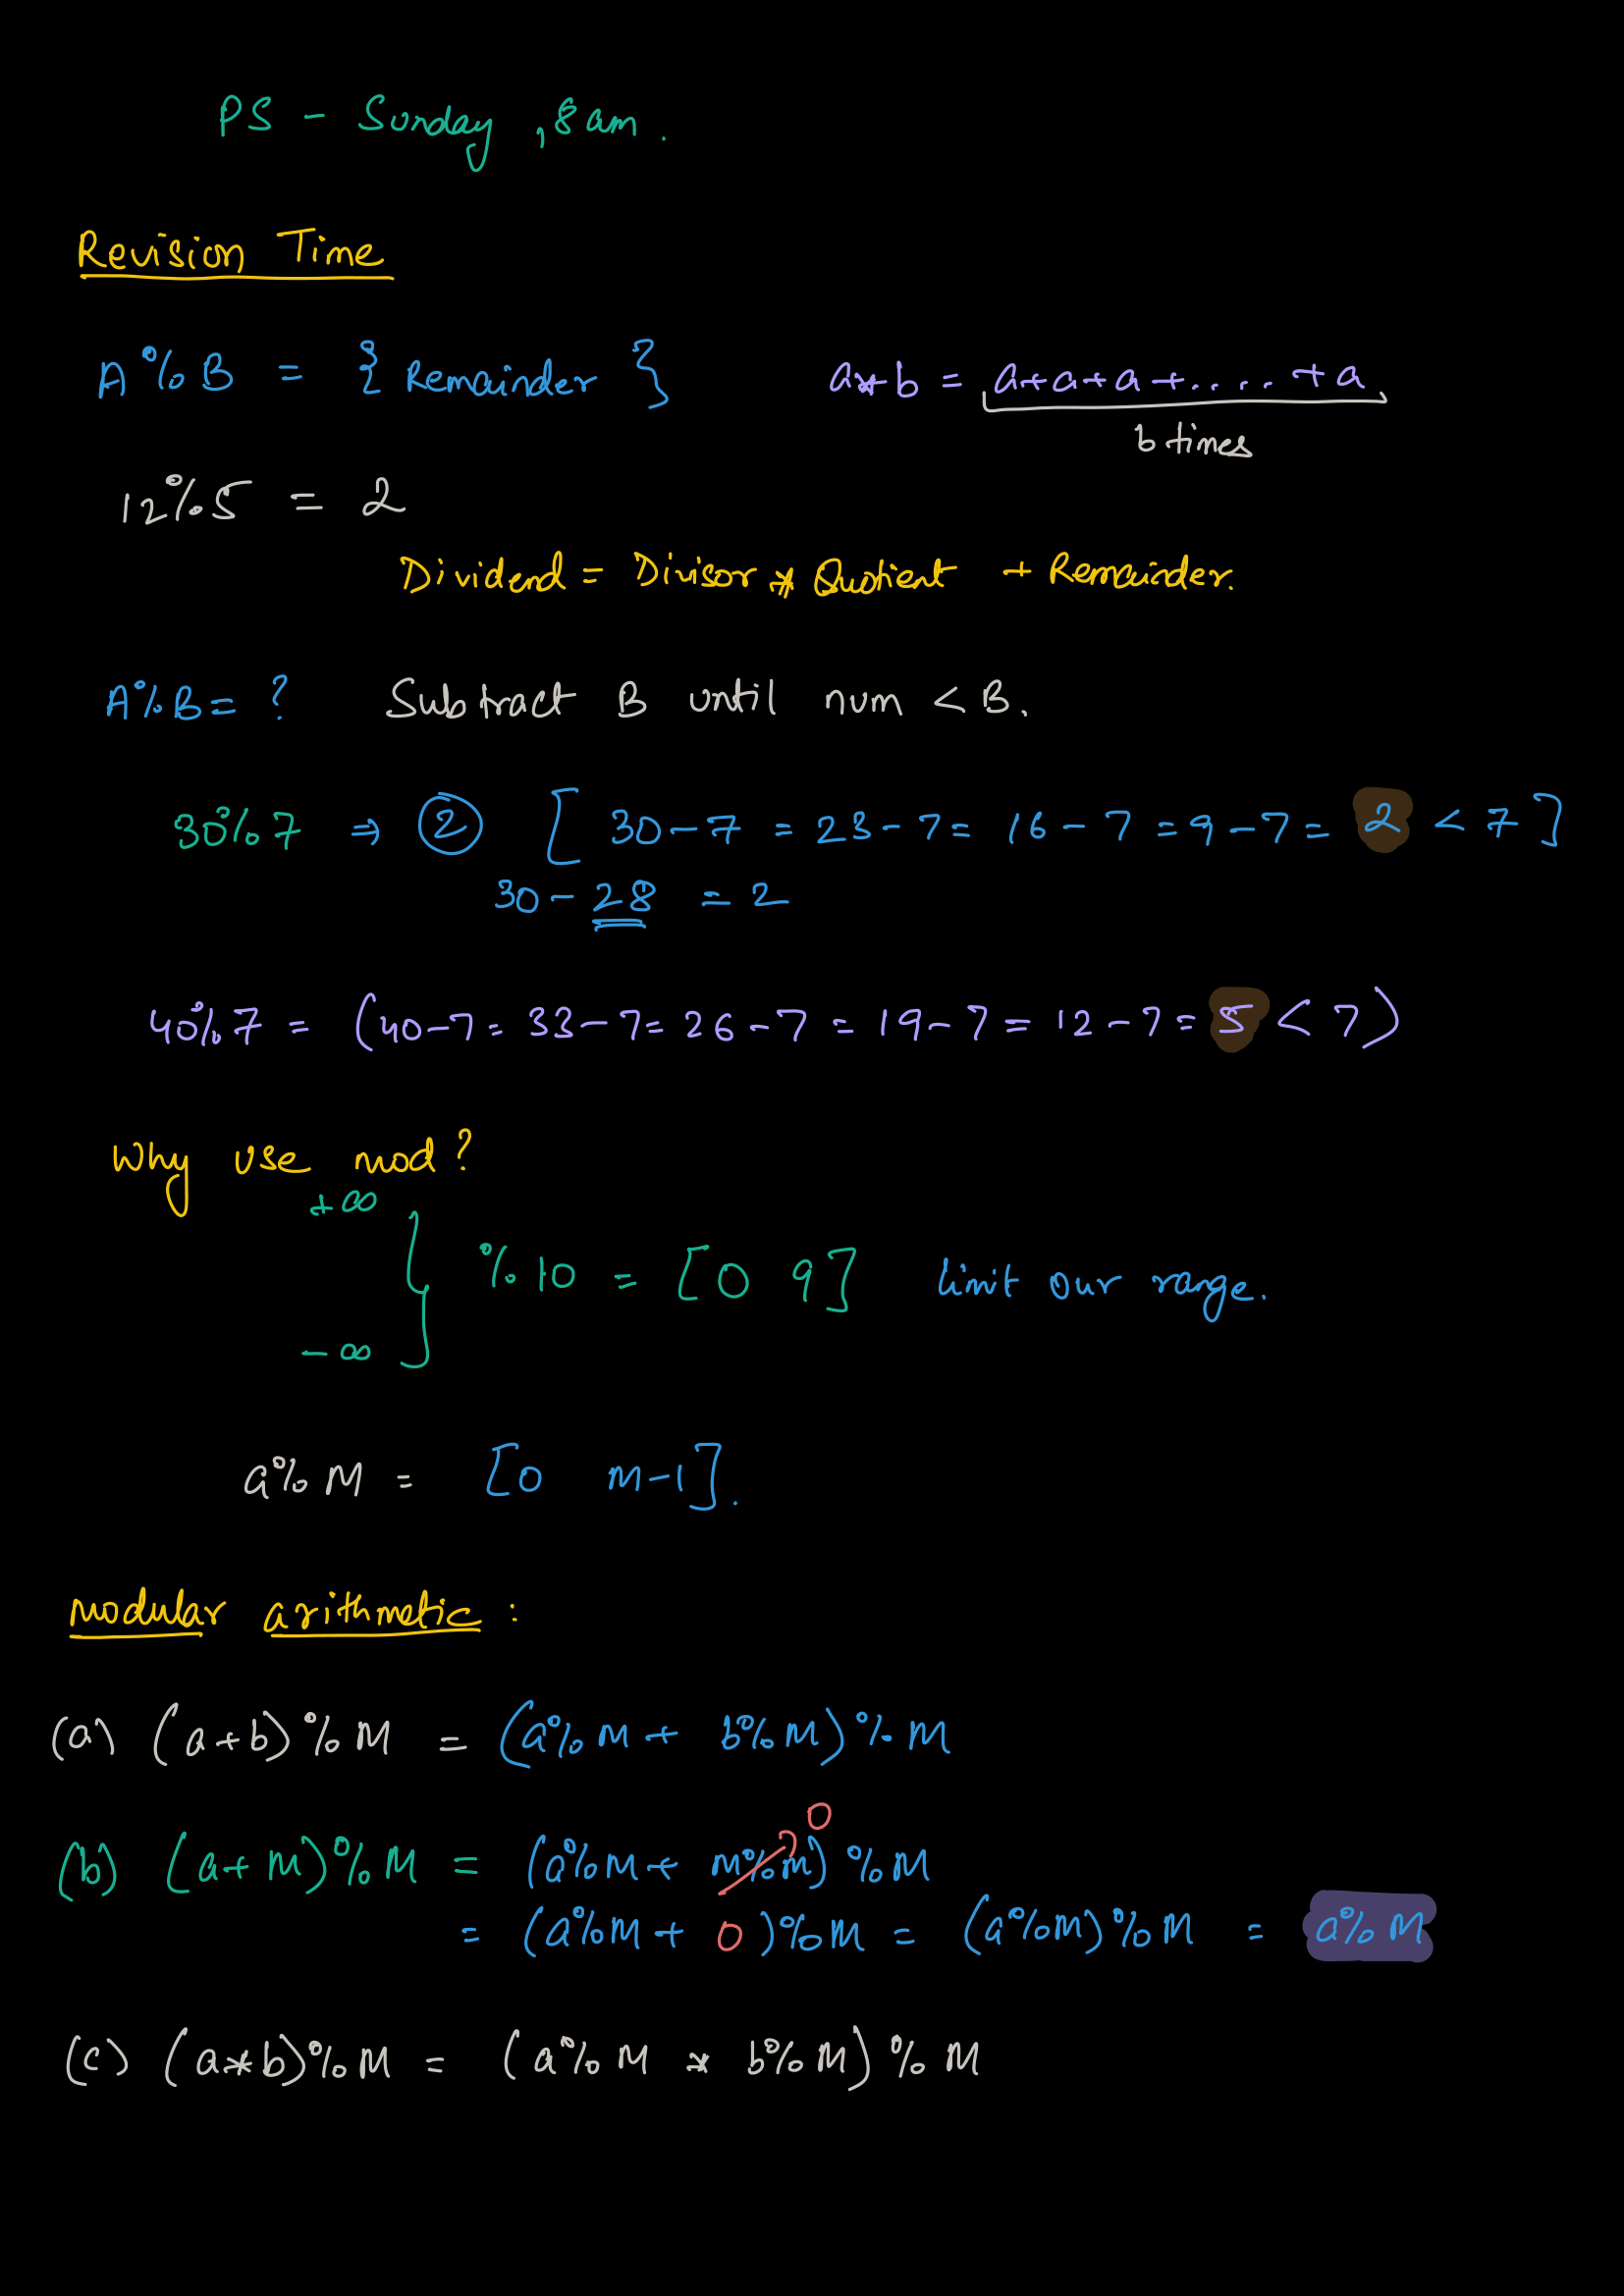 PS - Sunday , 8 am .
Revision Time
A % B = { Remainder }
a * b = a + a + a + ..... + a
b times
12 % 5 = 2
Dividend = Divisor * Quotient + Remainder.
A % B = ? Subtract B until num < B.
30 % 7 ⇒ 2 [ 30 - 7 = 23 - 7 = 16 - 7 = 9 - 7 = 2 < 7 ]
30 - 28 = 2
40 % 7 = ( 40 - 7 = 33 - 7 = 26 - 7 = 19 - 7 = 12 - 7 = 5 < 7 )
Why use mod ?
+ ∞
} % 10 = [ 0 9 ] limit our range.
- ∞
a % M = [ 0 m-1 ] .
modular arithmetic :
(a) ( a + b ) % M = ( a % m + b % M ) % M
0
(b) ( a + M ) % M = ( a % M + m % m ) % M
= ( a % M + 0 ) % M = ( a % M ) % M = a % M
(c) ( a * b ) % M = ( a % M * b % M ) % M